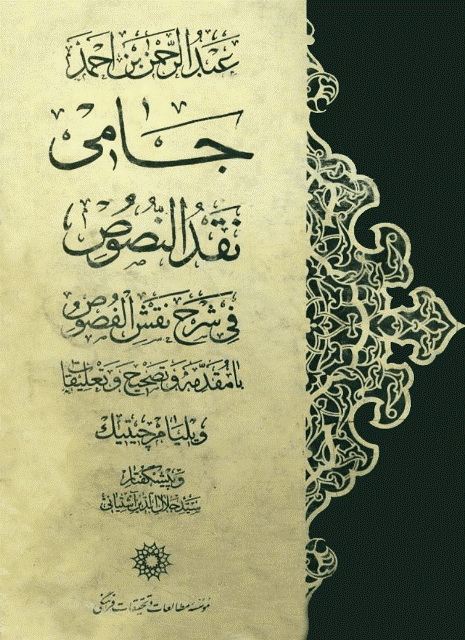 عبدالرحمن بن احمد
جامی
نقد النصوص
فی شرح نقش الفصوص
با مقدمه و تصحیح و تعلیقات
ویلیام چیتیک
و پیشگفتار
سید جلال الدین آشتیانی
مؤسسه مطالعات و تحقیقات فرهنگی